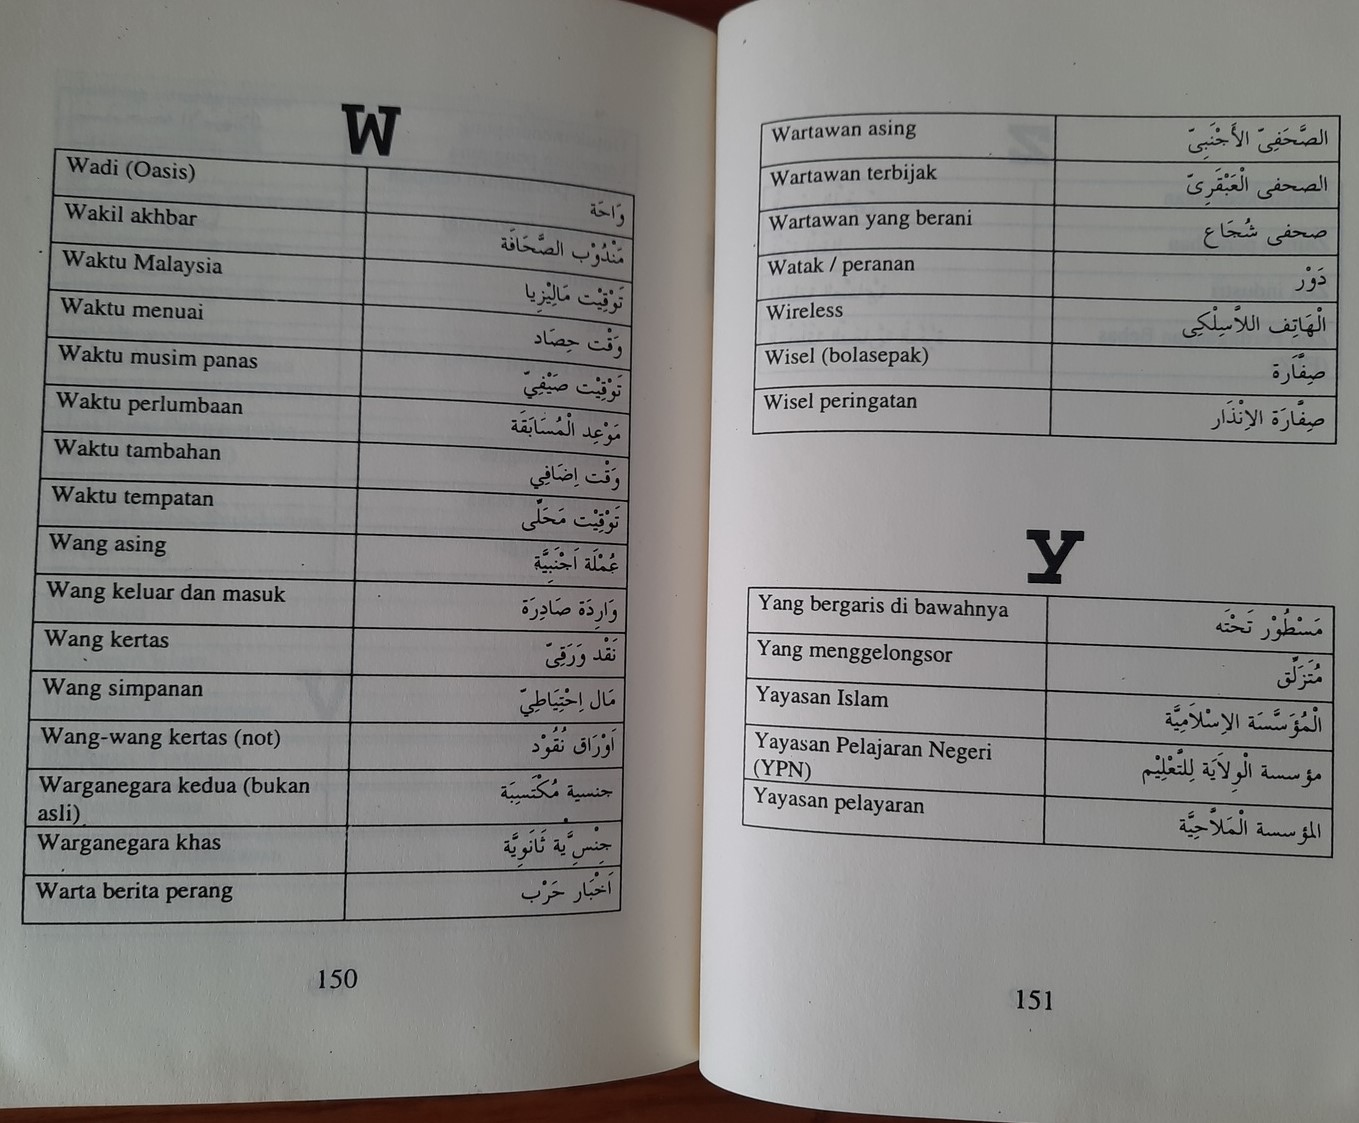 W
Wadi (Oasis) وَاحَة
Wakil akhbar مَنْدُوْب الصَّحَافَة
Waktu Malaysia تَوْقِيْت مَالِيْزِيا
Waktu menuai وَقْت حِصَاد
Waktu musim panas تَوْقِيْت صَيْفِيّ
Waktu perlumbaan مَوْعِد الْمُسَابَقَة
Waktu tambahan وَقْت اِضَافِي
Waktu tempatan تَوْقِيْت مَحَلّى
Wang asing عُمْلَة اَجْنَبِيَّة
Wang keluar dan masuk وَارِدَة صَادِرَة
Wang kertas نَقْد وَرَقِىّ
Wang simpanan مَال اِحْتِيَاطِيّ
Wang-wang kertas (not) اَوْرَاق نُقُوْد
Warganegara kedua (bukan جنسية مُكْتَسِبَة
asli)
Warganegara khas جِنْسِيَّة ثَانَوِيَّة
Warta berita perang اَخْبَار حَرْب
150
Wartawan asing الصَّحَفِىّ الأَجْنَبِىّ
Wartawan terbijak الصحفى الْعَبْقَرِىّ
Wartawan yang berani صحفى شُجَاع
Watak / peranan دَوْر
Wireless الْهَاتِف اللاَّسِلْكِى
Wisel (bolasepak) صِفَّارَة
Wisel peringatan صِفَّارَة الاِنْذَار
Y
Yang bergaris di bawahnya مَسْطُوْر تَحْتَه
Yang menggelongsor مُتَزَلِّق
Yayasan Islam الْمُؤَسَّسَة الاِسْلاَمِيَّة
Yayasan Pelajaran Negeri مؤسسة الْوِلاَيَة لِلتَّعْلِيْم
(YPN)
Yayasan pelayaran المؤسسة الْمَلاَّحِيَّة
151